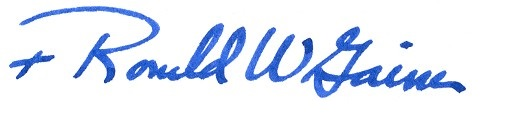 + Ronald W Gainer